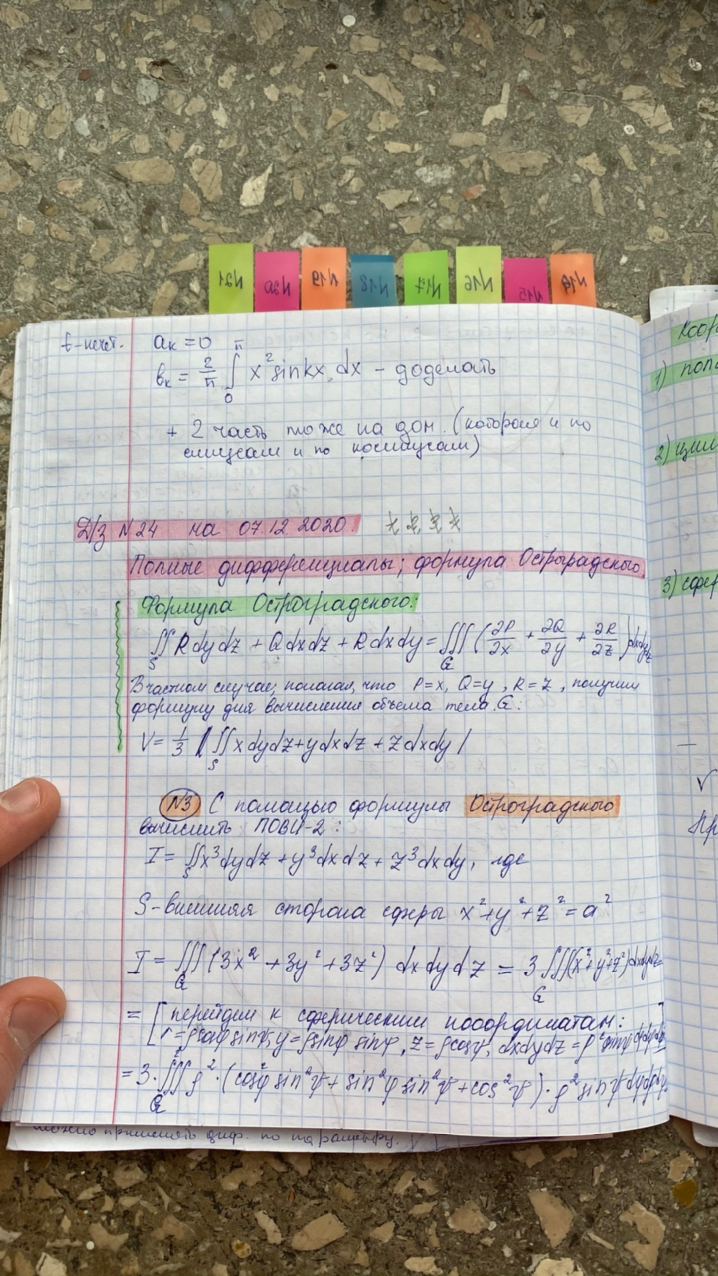 №21 №20 №19 №18 №17 №16 №15 №14
f-нечет. aₖ=0
bₖ = 2/π ∫₀^π x² sinkx dx – доделать
+ 2 часть тоже на дом. (которая и по
синусам и по косинусам)
Д/з №24 на 07.12.2020.
Полные дифференциалы; формула Остроградского.
Формула Остроградского:
∬_S R dydz + Q dxdz + R dxdy = ∭_G (∂P/∂x + ∂Q/∂y + ∂R/∂z) dxdydz
В частном случае, полагая, что P=x, Q=y, R=z, получим
формулу для вычисления объема тела G:
V = 1/3 |∬_S x dydz + y dxdz + z dxdy|
№3 С помощью формулы Остроградского
вычислить ПОВИ-2:
I = ∬_S x³ dydz + y³ dxdz + z³ dxdy, где
S-внешняя сторона сферы x² + y² + z² = a²
I = ∭_G (3x² + 3y² + 3z²) dxdydz = 3 ∭_G (x² + y² + z²) dxdydz =
= [перейдем к сферическим координатам:
=ρcosφ sinψ, y=ρsinφ sinψ, z=ρcosψ, dxdydz=ρ² sinψ
= 3·∭_G ρ²·(cos²φ sin²ψ + sin²φ sin²ψ + cos²ψ)·ρ² sinψ
можно применять диф. по параметру.
Коор
1) пол
2) цил
3) сфер
Пр